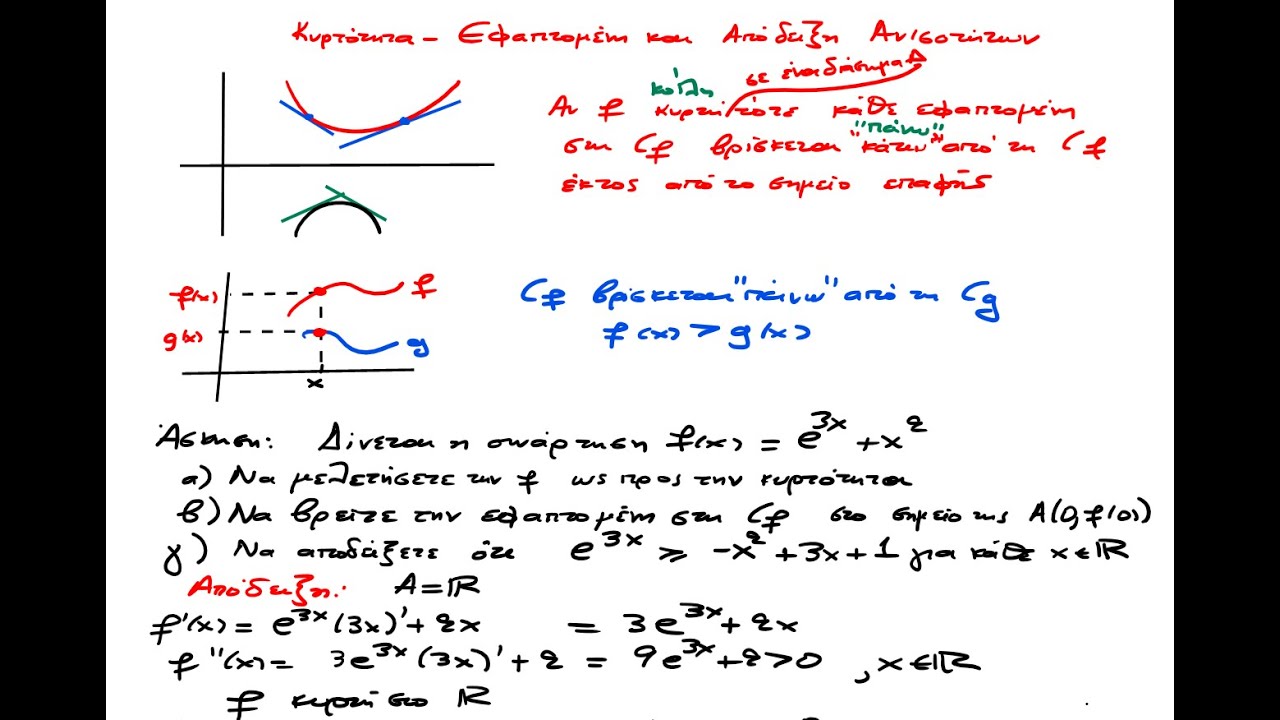 Κυρτότητα – Εφαπτομένη και Απόδειξη Ανισοτήτων
κοίλη σε ένα διάστημα Δ
Αν f κυρτή τότε κάθε εφαπτομένη
"πάνω"
στη Cf βρίσκεται "κάτω" από τη Cf
εκτός από το σημείο επαφής
f(x)
f
g(x)
g
x
Cf βρίσκεται "πάνω" από τη Cg
f(x) > g(x)
Άσκηση: Δίνεται η συνάρτηση f(x) = e^{3x} + x^2
α) Να μελετήσετε την f ως προς την κυρτότητα
β) Να βρείτε την εφαπτομένη στη Cf στο σημείο της A(0, f(0))
γ) Να αποδείξετε ότι e^{3x} ≥ -x^2 + 3x + 1 για κάθε x ∈ ℝ
Απόδειξη: A = ℝ
f'(x) = e^{3x}(3x)' + 2x = 3e^{3x} + 2x
f''(x) = 3e^{3x}(3x)' + 2 = 9e^{3x} + 2 > 0, x ∈ ℝ
f κυρτή στο ℝ